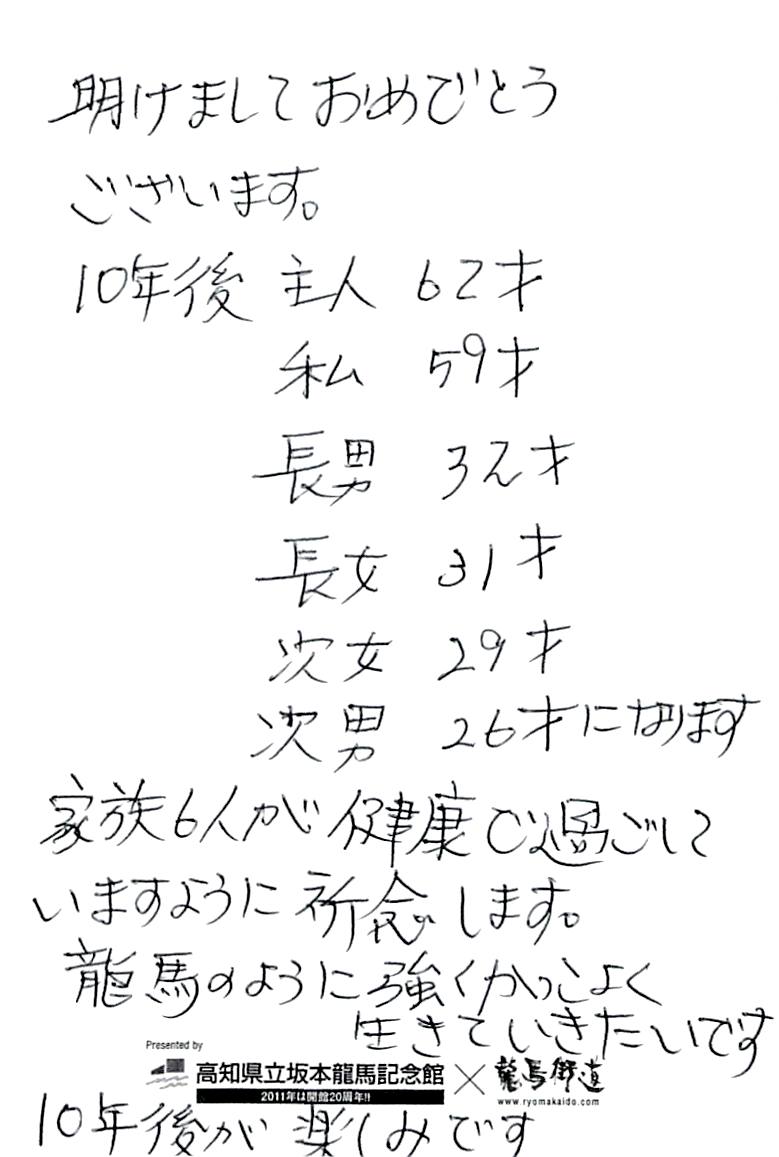 明けましておめでとう
ございます。
10年後 主人 62才
私 59才
長男 32才
長女 31才
次女 29才
次男 26才になります
家族6人が健康で過ごして
いますように祈念します。
龍馬のように強くかっこよく
生きていきたいです
Presented by
高知県立坂本龍馬記念館 × 龍馬街道
2011年は開館20周年!!
www.ryomakaido.com
10年後が楽しみです